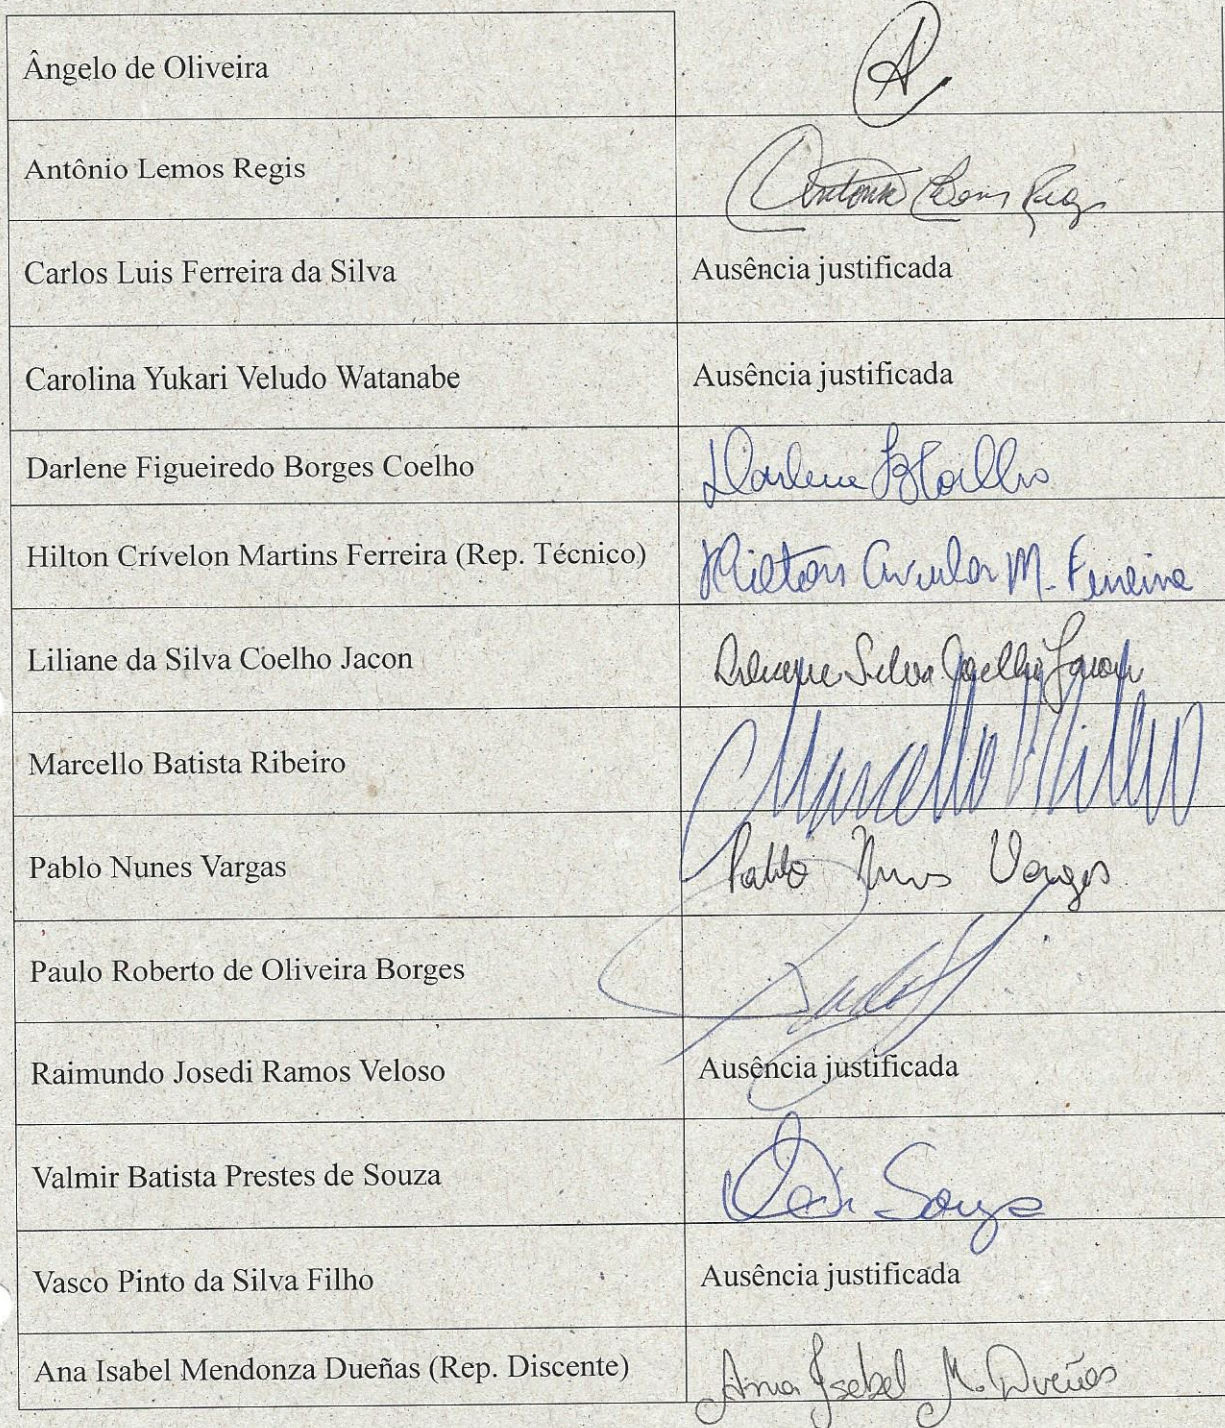 Ângelo de Oliveira
A
Antônio Lemos Regis
Antonio Lemos Regis
Carlos Luis Ferreira da Silva Ausência justificada
Carolina Yukari Veludo Watanabe Ausência justificada
Darlene Figueiredo Borges Coelho
Darlene FBCoelho
Hilton Crívelon Martins Ferreira (Rep. Técnico)
Hilton M. Ferreira
Liliane da Silva Coelho Jacon
Silva Coelho Jacon
Marcello Batista Ribeiro
Marcello
Pablo Nunes Vargas
Pablo Nunes Vargas
Paulo Roberto de Oliveira Borges
Raimundo Josedi Ramos Veloso Ausência justificada
Valmir Batista Prestes de Souza
Souza
Vasco Pinto da Silva Filho Ausência justificada
Ana Isabel Mendonza Dueñas (Rep. Discente)
Ana Isabel M. Dueñas